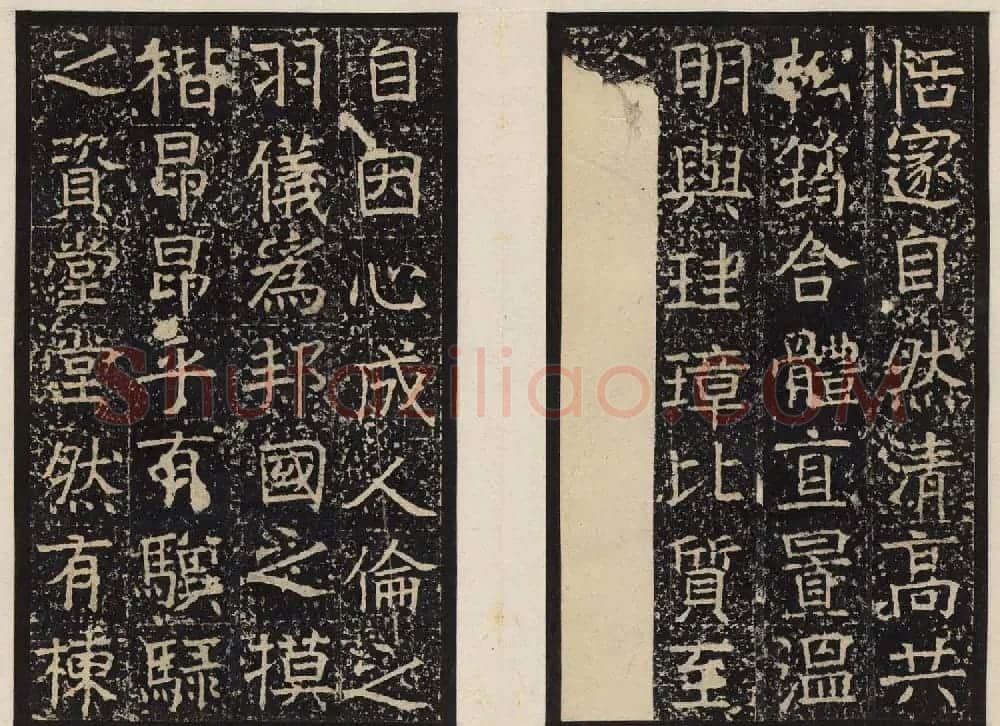 恬邃自然清高共
松筠合體直置溫
明與珪璋比質至
自因心成人倫之
羽儀為邦國之摸
楷昂昂乎有驥騄
之資堂堂然有棟
Shufaziliao.COM